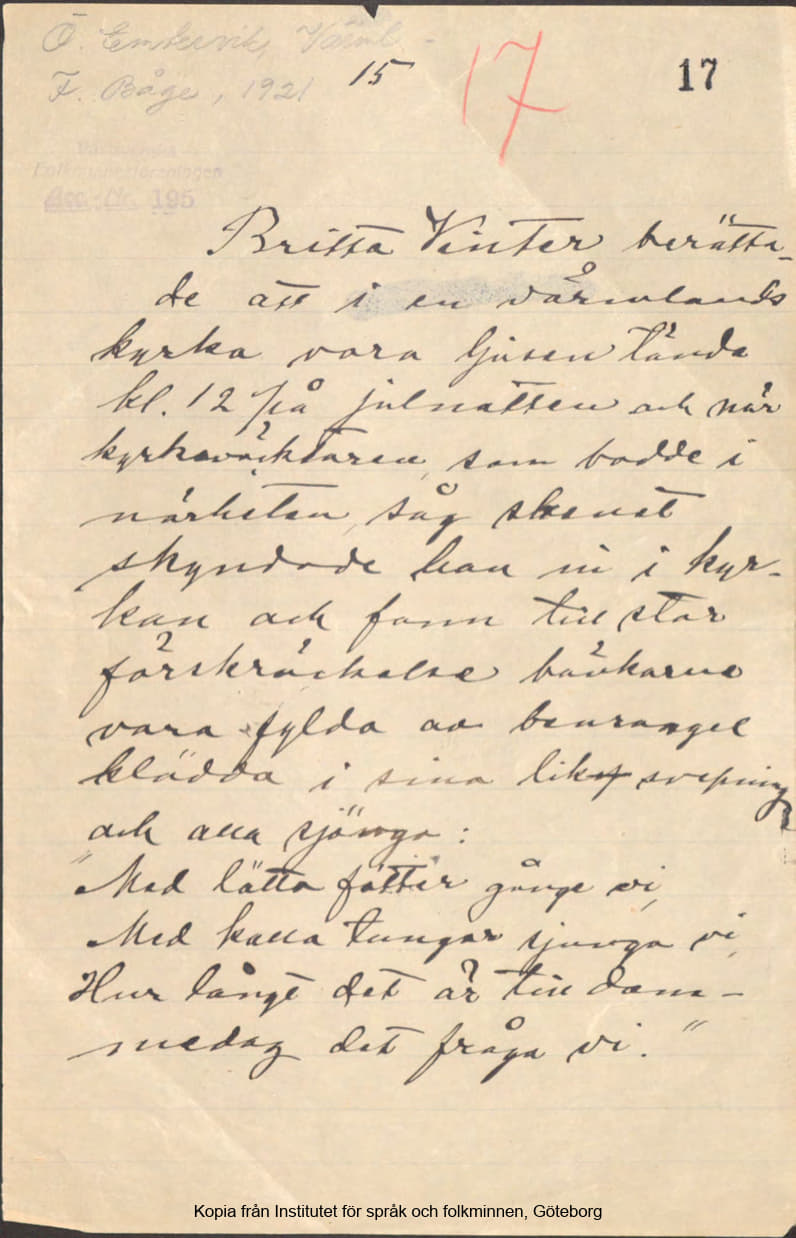 Ö. Emtervik, Värml.
F. Båge, 1921
15
17
17
Västsvenska
Folkminnesföreningen
Acc. Nr. 195
Britta Vinter berätta-
de att i en värmlands
kyrka vora ljusen tända
kl. 12 på julnatten och när
kyrkväcktaren, som bodde i
närheten, såg skenet
skyndade han in i kyr-
kan och fann till stor
förskräckelse bänkarne
vara fylda av benrangel
klädda i sina lik svepning
och alla sjöngo:
"Med lätta fötter gånge vi,
Med kalla tungor sjunga vi,
Hur långt det är till dom-
medag det fråga vi."
Kopia från Institutet för språk och folkminnen, Göteborg